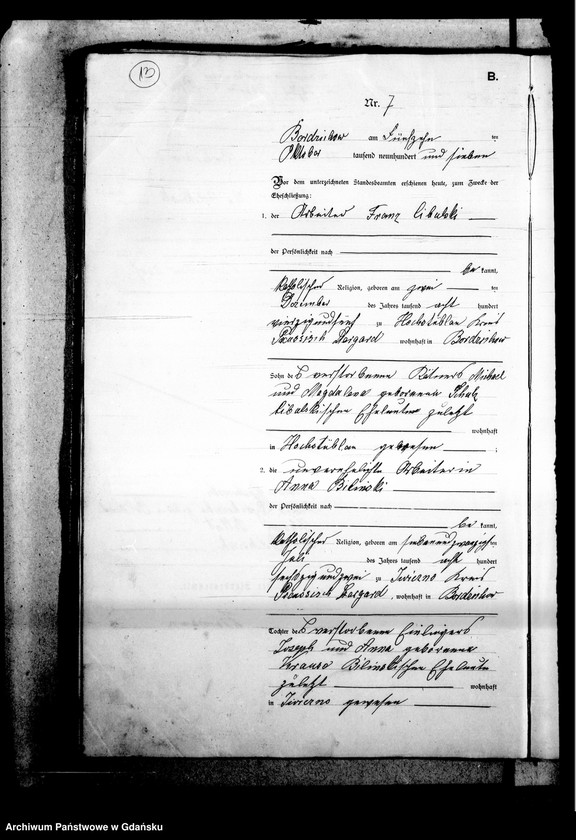 13
B.
Nr. 7
Bordzichow am fünfzehn ten
Oktober tausend neunhundert und sieben
Vor dem unterzeichneten Standesbeamten erschienen heute, zum Zwecke der
Eheschließung:
1. der Arbeiter Franz Cibulski
der Persönlichkeit nach
be kannt,
katholischer Religion, geboren am zwei ten
Dezember des Jahres tausend acht hundert
vierzigundfünf zu Hochstüblau Kreis
Preussisch Stargard wohnhaft in Bordzichow
Sohn der verstorbenen Kätners Michael
und Magdalena geborenen Schulz
Cibulskischen Eheleute zuletzt
wohnhaft
in Hochstüblau gewesen ;
2. die unverehelichte Arbeiterin
Anna Bilinski
der Persönlichkeit nach
be kannt,
katholischer Religion, geboren am ten
Juli des Jahres tausend acht hundert
sechszigundzwei zu Kreis
Preussisch Stargard, wohnhaft in Bordzichow
Tochter der verstorbenen Einlieger
Joseph und Anna geborenen
Krause Bilinskischen Eheleute
zuletzt wohnhaft
in gewesen
Archiwum Państwowe w Gdańsku